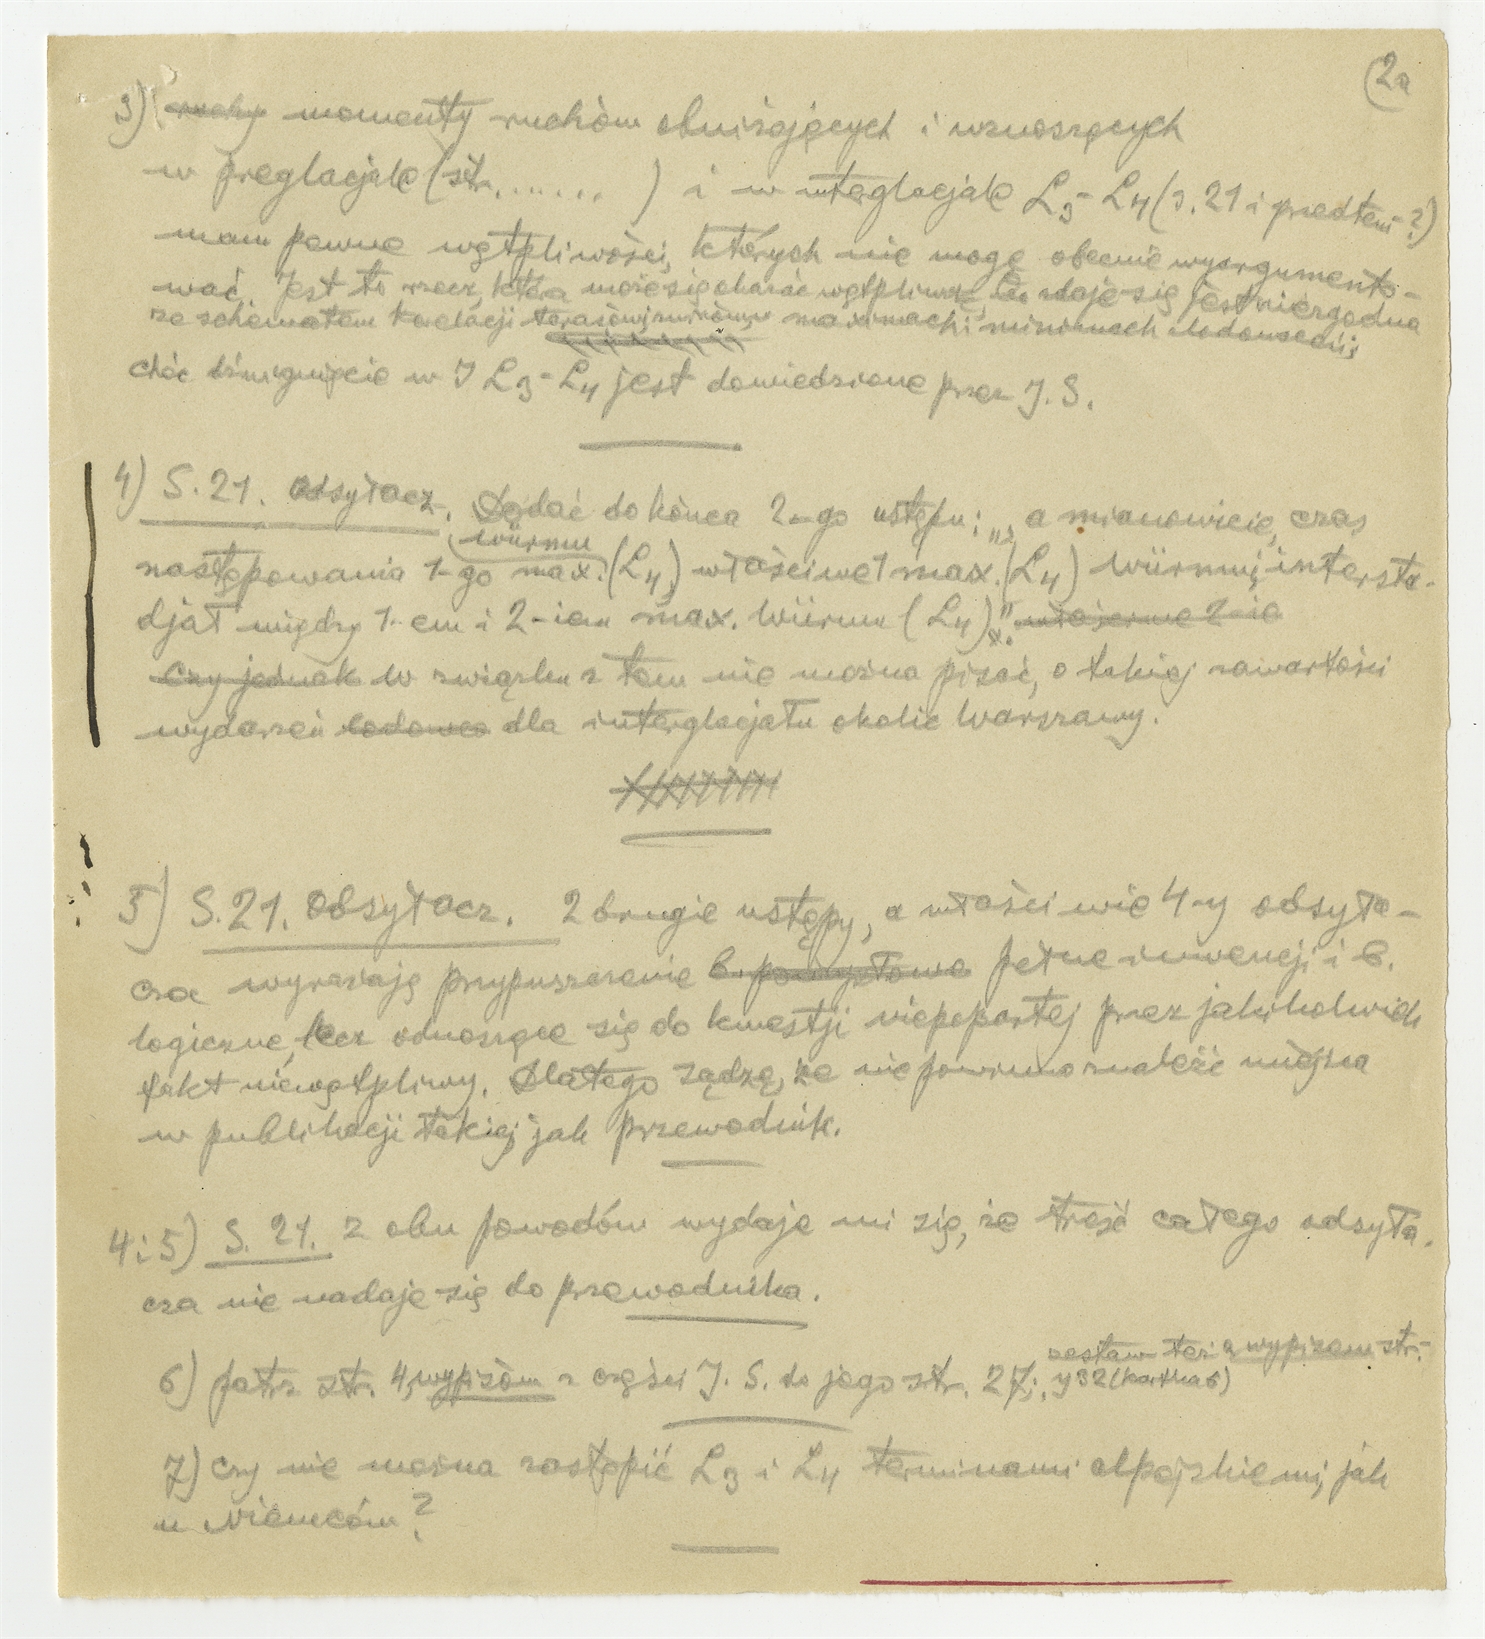 2a
3) ruchy momenty ruchów obniżających i wznoszących
w preglacjale (str. ....... ) i w interglacjale L3-L4 (s. 21 i przedtem-?)
mam pewne wątpliwości, których nie mogę obecnie wyargumento-
wać. Jest to rzecz, która może się okazać wątpliwą, bo zdaje się jest niezgodna
ze schematem korelacji maximach i minimach zlodowaceń;
choć dźwignięcie w J L3-L4 jest dowiedzione przez J. S.
4) S. 21. Odsyłacz. Dodać do końca 2-go ustępu: „, a mianowicie, czas
Würmu
nastąpowania 1-go max. (L4) właściwe 1 max. (L4) Würmu; intersta-
djał między 1-em i 2-iem max. Würmu (L4)". 2-ie
czy jednak w związku z tem nie można pisać, o takiej zawartości
wydarzeń lodowco dla interglacjału okolic Warszawy.
5) S. 21. Odsyłacz. 2 drugie ustępy, a właściwie 4-y odsyła-
cza wyrażają przypuszczenie b. pomysłowe pełne inwencji i b.
logiczne, lecz odnoszące się do kwestji niepopartej przez jakikolwiek
fakt niewątpliwy. Dlatego sądzę, że nie powinno znaleźć miejsca
w publikacji takiej, jak przewodnik.
4 i 5) S. 21. Z obu powodów wydaje mi się, że treść całego odsyła-
cza nie nadaje się do przewodnika.
zestaw też z wypisem str.
6) patrz str. 4, wypisów z części J. S. do jego str. 27; y 32 (kartka 6)
7) czy nie można zastąpić L3 i L4 terminami alpejskiemi, jak
u Niemców?